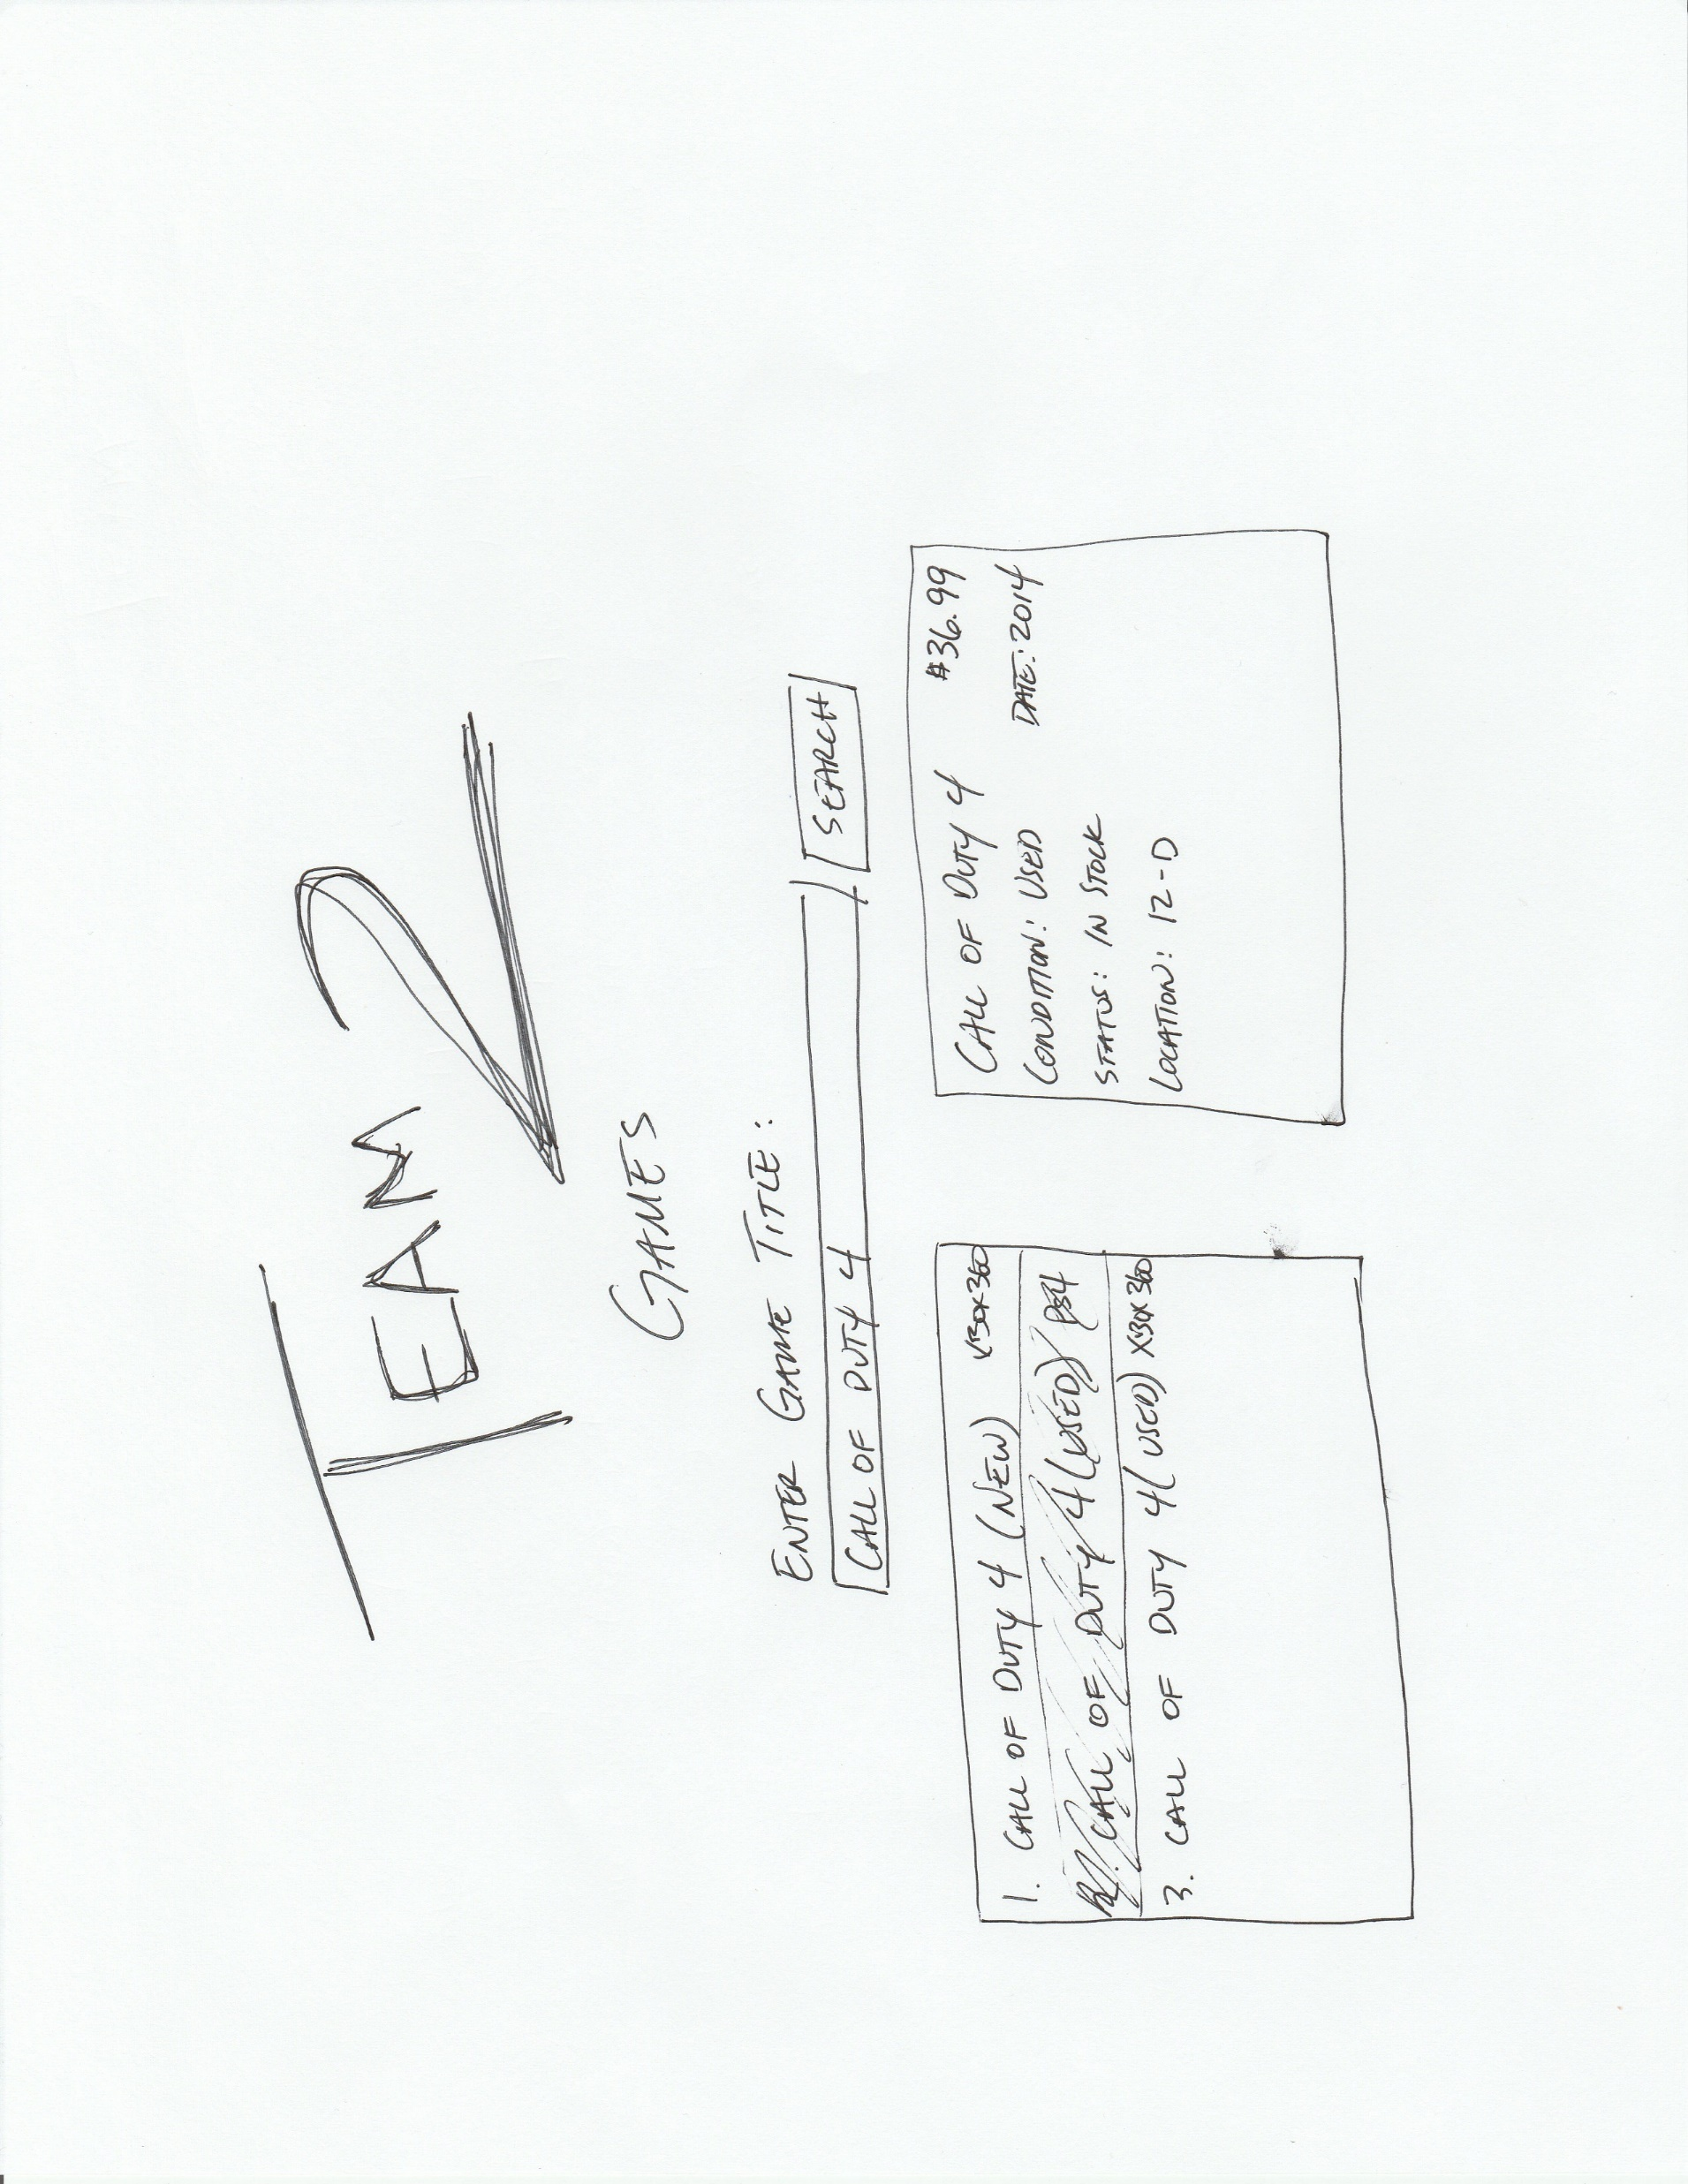 TEAM 2
GAMES
ENTER GAME TITLE:
CALL OF DUTY 4 SEARCH
1. CALL OF DUTY 4 (NEW) XBOX360
2. CALL OF DUTY 4 (USED) PS4
3. CALL OF DUTY 4 (USED) XBOX360
CALL OF DUTY 4 $36.99
CONDITION: USED DATE: 2014
STATUS: IN STOCK
LOCATION: 12-D